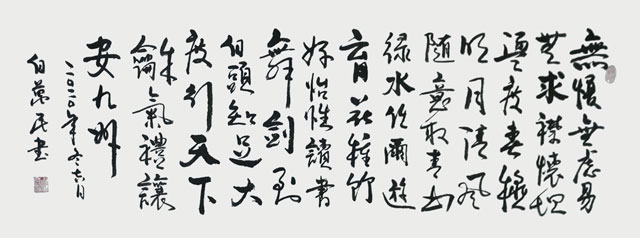 無懮無慮易
無求襟懷坦
度春秋
明月清風
隨意取青山
綠水任爾遊
育花種竹
好怡性讀書
舞劍到
白頭知足大
度行天下
龢氣禮讓
安九州
二〇二〇年六月
萬民書